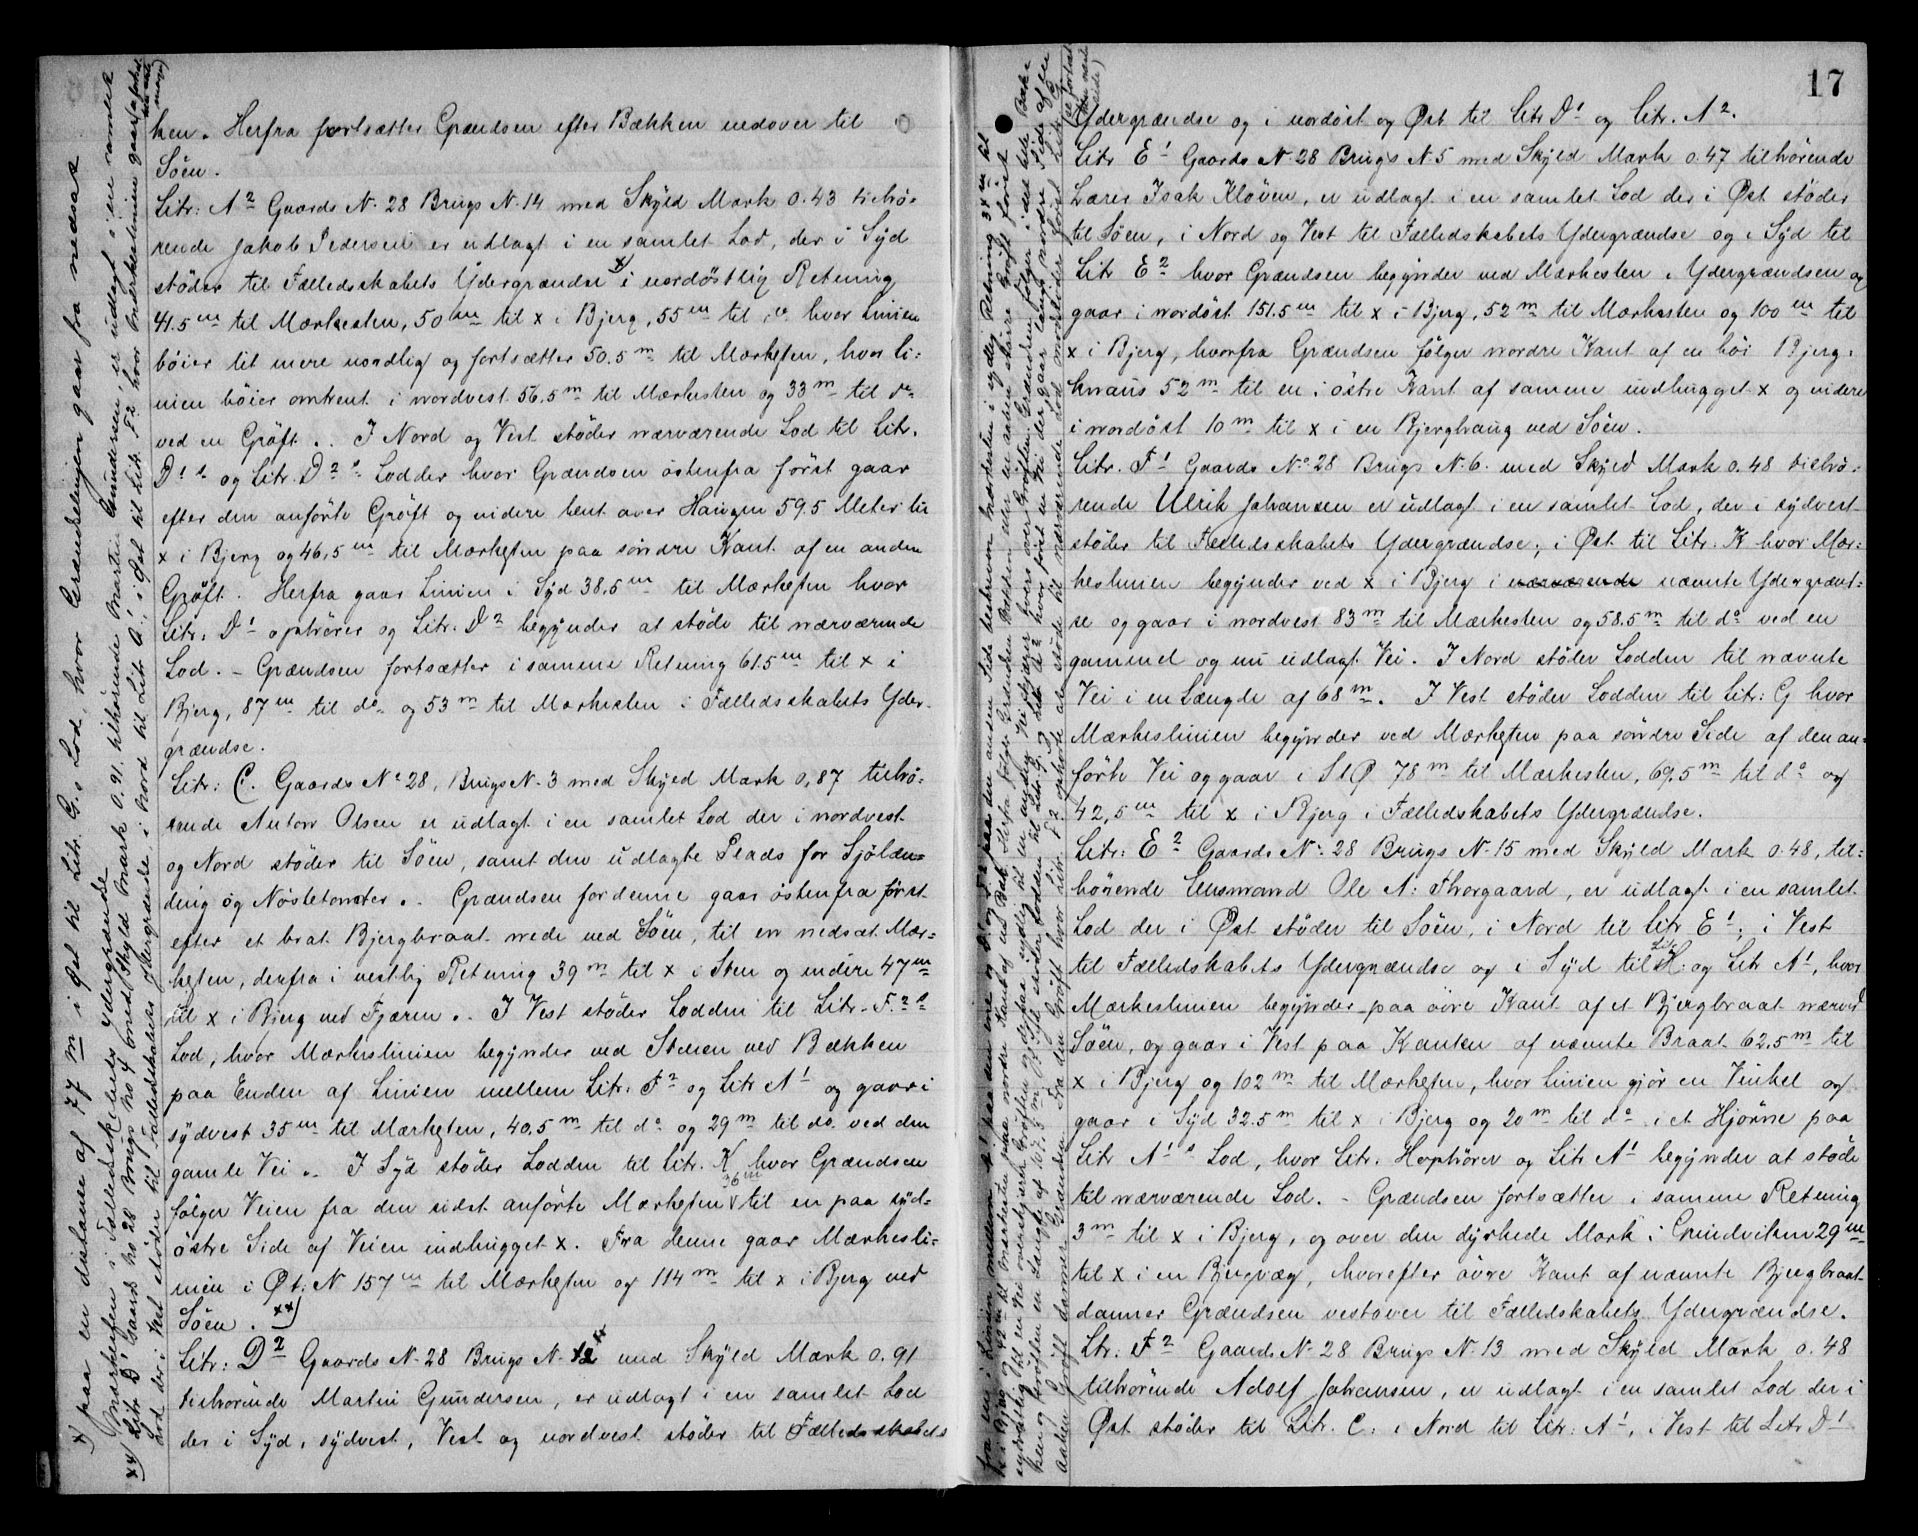 ken. Herfra fortsætter Grændsen efter Bækken nedover til
Söen.
Litr: A2 Gaards N. 28 Brugs N. 14 med Skyld Mark 0.43 tilhö-
rende Jakob Pedersen er udlagt i en samlet Lod, der i Syd
støder til Fælledsskabets Ydergrændse x) i nordöstlig Retning
41.5 m til Mærkesten, 50 m til x i Bjerg, 55 m til do hvor Linien
böier lit mere nordlig og fortsætter 50.5 m til Mærkesten, hvor Li-
nien böier omtrent i nordvest 56.5 m til Mærkesten og 33 m til do
ved en Gröft. I Nord og Vest støder nærværende Lod til Litr.
D1s og Litr. D2s Lodder hvor Grændsen østenfra først gaar
efter den anförte Gröft og videre bent over Haugen 59.5 Meter til
x i Bjerg og 46,5 m til Mærkesten paa söndre Kant af en anden
Gröft. Herfra gaar Linien i Syd 38.5 m til Mærkesten hvor
Litr. D1 ophører og Litr. D2 begynder at støde til nærværende
Lod. - Grændsen fortsætter i samme Retning 61.5 m til x i
Bjerg, 87 m til do og 53 m til Mærkesten i Fælledsskabets Yder-
grændse.
Litr: C. Gaards No 28, Brugs N. 3 med Skyld Mark 0,87 tilhö-
rende Anton Olsen er udlagt i en samlet Lod der i nordvest
og Nord støder til Söen, samt den udlagte Plads for Sjölæn-
ding og Nöstetomter. Grændsen for denne gaar østenfra först
efter et brat Bjergbraat nede ved Söen, til en nedsat Mær-
kesten, derfra i vestlig Retning 39 m til x i Sten og videre 47 m
til x i Bjerg ved Fjæren. I Vest støder Lodden til Litr. F2s
Lod, hvor Mærkeslinien begynder ved Stenen ved Bækken
paa Enden af Linien mellem Litr. F2 og Litr A1 og gaar i
sydvest 35 m til Mærkesten, 40.5 m til do og 29 m til do ved den
gamle Vei. I Syd støder Lodden til Litr. K hvor Grændsen
følger Veien fra den sidst anförte Mærkesten 36 m til en paa syd-
östre Side af Veien indhugget x. Fra denne gaar Mærkesli-
nien i Øst: N 157 m til Mærkesten og 114 m til x i Bjerg ved
Söen. xx)
Litr: D2 Gaards N. 28 Brugs N. 12 med Skyld Mark 0.91
tilhörende Martin Gundersen, er udlagt i en samlet Lod
der i Syd, sydvest, Vest og nordvest støder til Fælledsskabets
x) paa en distanse af 77 m i Øst til Litr. G.s Lod, hvor Grændselinjen gaar fra nedsat
Mærkesten i Fælledsskabets Ydergrændse
xx) Litr D1 Gaards No 28 Brugs No 4 med Skyld Mark 0.91 tilhörende Martin Gundersen, er udlagt i en samlet
Lod der i Vest støder til Fælledsskabets Ydergrændse, i Nord til Litr A1, i Øst til Litr. F2 hvor Mærkeslinien gaar
17
Ydergrændse og i nordöst og Øst til Litr D1 og Litr. A2.
Litr E1 Gaards N. 28 Brugs N. 5 med Skyld Mark 0.47 tilhörende
Lærer Isak Kløven, er udlagt i en samlet Lod der i Øst støder
til Söen, i Nord og Vest til Fælledskabets Ydergrændse og i Syd til
Litr E2 hvor Grændsen begynder ved Mærkesten i Ydergrændsen og
gaar i nordöst 151.5 m til x i Bjerg, 52 m til Mærkesten og 100 m til
x i Bjerg, hvorfra Grændsen fölger nordre Kant af en höi Bjerg-
knaus 52 m til en i östre Kant af samme indhugget x og videre
i nordöst 10 m til x i en Berghaug ved Söen.
Litr. F1 Gaards No 28 Brugs N. 6. med Skyld Mark 0.48 tilhö-
rende Ulrik Johansen er udlagt i en samlet Lod, der i sydvest
støder til Fælledsskabets Ydergrændse, i Øst til Litr. K hvor Mær-
keslinien begynder ved x i Bjerg i nærværende nævnte Ydergrænd-
se og gaar i nordvest 83 m til Mærkesten og 58.5 m til do ved en
gammel og nu udlagt Vei. I Nord støder Lodden til nævnte
Vei i en Længde af 68 m. I Vest støder Lodden til Litr: G hvor
Mærkeslinien begynder ved Mærkesten paa söndre Side af den an-
förte Vei og gaar i StØ 78 m til Mærkesten, 69.5 m til do og
42,5 m til x i Bjerg i Fælledskabets Ydergrændse.
Litr: E2 Gaards No 28 Brugs N. 15 med Skyld Mark 0.48, til-
hörende Lensmand Ole A. Thorgaard, er udlagt i en samlet
Lod der i Øst støder til Söen, i Nord til Litr E1, i Vest
til Fælledskabets Ydergrændse og i Syd til Litr. H. og Litr A1, hvor
Mærkeslinien begynder paa övre Kant af et Bjergbraat nærved
Söen, og gaar i Vest paa Kanten af nævnte Braat 62.5 m til
x i Bjerg og 102 m til Mærkesten, hvor Linien gjör en Vinkel og
gaar i Syd 32.5 m til x i Bjerg og 20 m til do i et Hjörne paa
Litr A1s Lod, hvor Litr. H ophörer og Litr A1 begynder at støde
til nærværende Lod. - Grændsen fortsætter i samme Retning
3 m til x i Bjerg, og over den dyrkede Mark i Grundviken 29 m
til x i en Bergvæg, hvorefter övre Kant af nævnte Bjergbraat
danner Grændsen vestover til Fælledskabets Ydergrændse.
Litr. F2 Gaards N. 28 Brugs N. 13 med Skyld Mark 0.48
tilhörende Adolf Johansen, er udlagt i en samlet Lod der i
Øst støder til Litr. C. i Nord til Litr: A1, i Vest til Litr D1